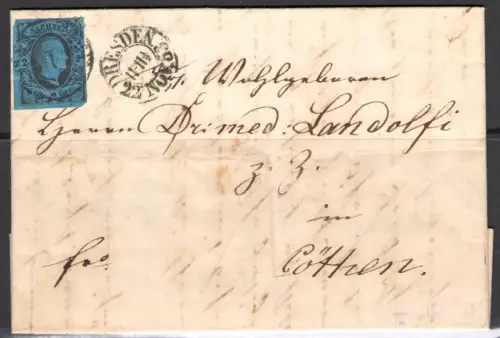 SACHSEN
DRESDEN
Sr. Wohlgeboren
Herrn Dr: med: Landolfi
z. Z.
in
fro. Cöthen.